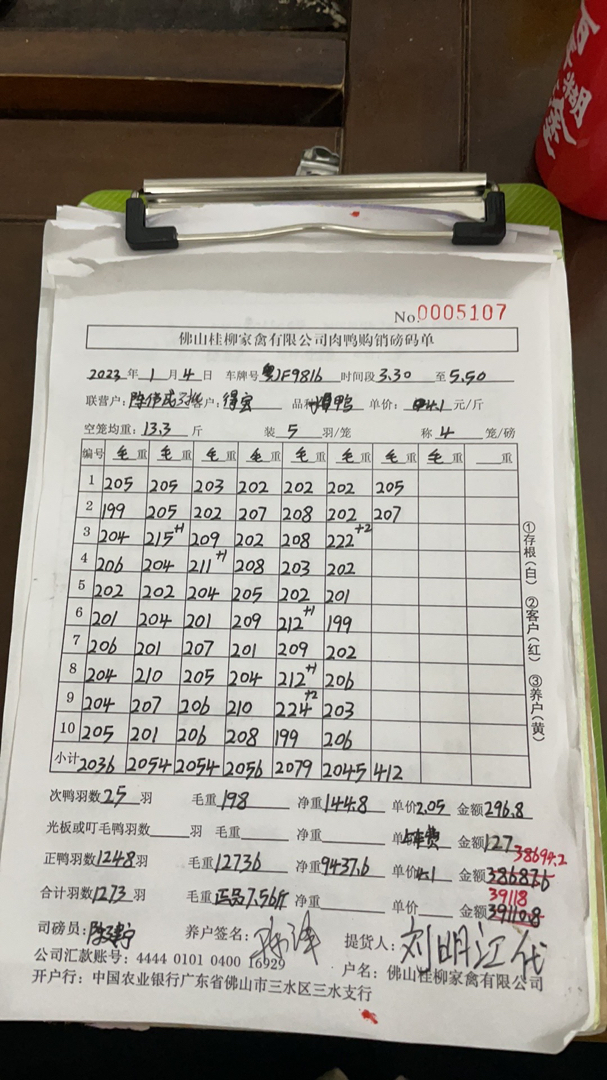 No. 0005107
佛山桂柳家禽有限公司肉鸭购销磅码单
2023年1月4日 车牌号 粤JF9816 时间段 3.30 至 5.50
联营户: 客户: 得宏 品种 鸭 单价: 4.1 元/斤
空笼均重: 13.3 斤 装 5 羽/笼 称 4 笼/磅
编号 毛重 毛重 毛重 毛重 毛重 毛重 毛重 毛重 重
1 205 205 203 202 202 202 205
2 199 205 202 207 208 202 207
3 204 215+1 209 202 208 222+2
4 206 204 211+1 208 203 202
5 202 202 204 205 202 201
6 201 204 201 209 212+1 199
7 206 201 207 201 209 202
8 204 210 205 204 212+1 206
9 204 207 206 210 224+2 203
10 205 201 206 208 199 206
小计 2036 2054 2054 2056 2079 2045 412
①存根(白) ②客户(红) ③养户(黄)
次鸭羽数 25 羽 毛重 198 净重 144.8 单价 2.05 金额 296.8
光板或叮毛鸭羽数 羽 毛重 净重 单 车费 金额 127
38694.2
正鸭羽数 1248 羽 毛重 12736 净重 9437.6 单价 4.1 金额 38687.6
39118
合计羽数 1273 羽 毛重 正品7.56斤 净重 单价 金额 39110.8
司磅员: 养户签名: 提货人: 刘明江代
公司汇款账号: 4444 0101 0400 16929 户名: 佛山桂柳家禽有限公司
开户行: 中国农业银行广东省佛山市三水区三水支行